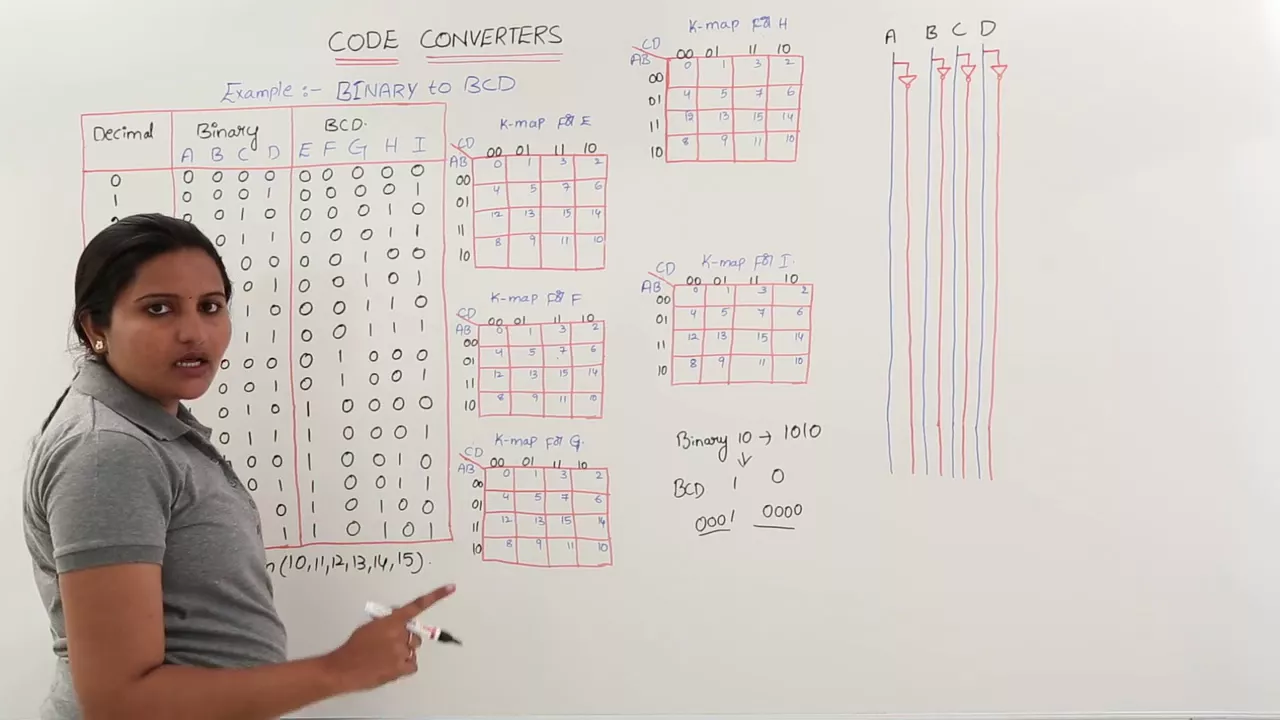 CODE CONVERTERS
Example :- BINARY to BCD
Decimal Binary BCD.
A B C D E F G H I
0 0 0 0 0 0 0 0 0 0
1 0 0 0 1 0 0 0 0 1
0 0 1 0 0 0 0 1 0
0 1 1 0 0 0 1 1
0 0 0 0 1 0 0
0 1 0 0 1 0 1
1 0 0 0 1 1 0
1 1 0 0 1 1 1
0 0 0 0 1 0 0 0
0 0 1 0 1 0 0 1
0 1 0 1 0 0 0 0
1 1 1 0 0 0 1
0 0 1 0 0 1 0
0 1 1 0 0 1 1
1 0 1 0 1 0 0
1 1 0 1 0 1
(10,11,12,13,14,15).
K-map For E
CD
AB 00 01 11 10
00 0 1 3 2
01 4 5 7 6
11 12 13 15 14
10 8 9 11 10
K-map For F
CD
AB 00 01 11 10
00 0 1 3 2
01 4 5 7 6
11 12 13 15 14
10 8 9 11 10
K-map For G.
CD
AB 00 01 11 10
00 0 1 3 2
01 4 5 7 6
11 12 13 15 14
10 8 9 11 10
K-map For H
CD
AB 00 01 11 10
00 0 1 3 2
01 4 5 7 6
11 12 13 15 14
10 8 9 11 10
K-map For I.
CD
AB 00 01 11 10
00 0 1 3 2
01 4 5 7 6
11 12 13 15 14
10 8 9 11 10
Binary 10 → 1010
BCD 1 0
0001 0000
A B C D